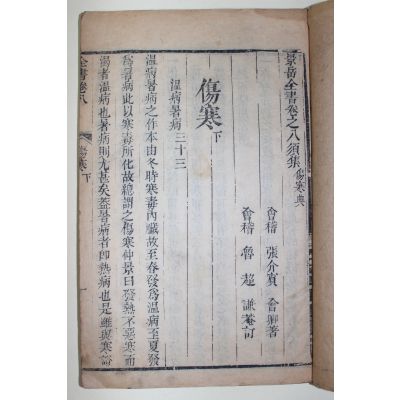 景岳全書卷之八須集 傷寒典
會稽 張介賓 會卿著
會稽 魯超 謙菴訂
傷寒下
溫病暑病三十三
溫病暑病之作本由冬時寒毒內藏故至春發爲溫病至夏發
爲暑病此以寒毒所化故總謂之傷寒仲景曰發熱不惡寒而
渴者溫病也若暑病則尤甚矣蓋暑病者即熱病也是雖與寒
全書卷八
傷寒下
一